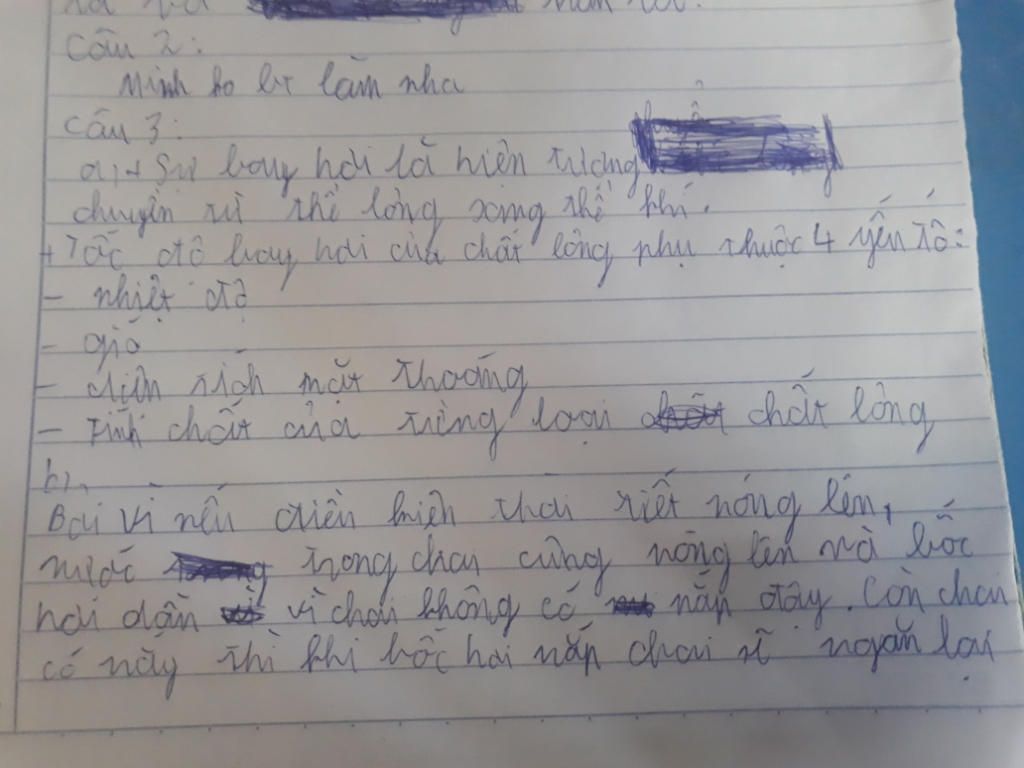 Câu 2:
Mình ko bt làm nha
Câu 3:
a, + Sự bay hơi là hiện tượng
chuyển từ thể lỏng sang thể khí.
+ Tốc độ bay hơi của chất lỏng phụ thuộc 4 yếu tố:
- nhiệt độ
- gió
- diện tích mặt thoáng
- tính chất của từng loại chất lỏng
b,
Bởi vì nếu điều kiện thời tiết nóng lên,
nước trong chai cũng nóng lên và bốc
hơi dần vì chai không có nắp đậy. Còn chai
có nắp thì khi bốc hơi nắp chai sẽ ngăn lại